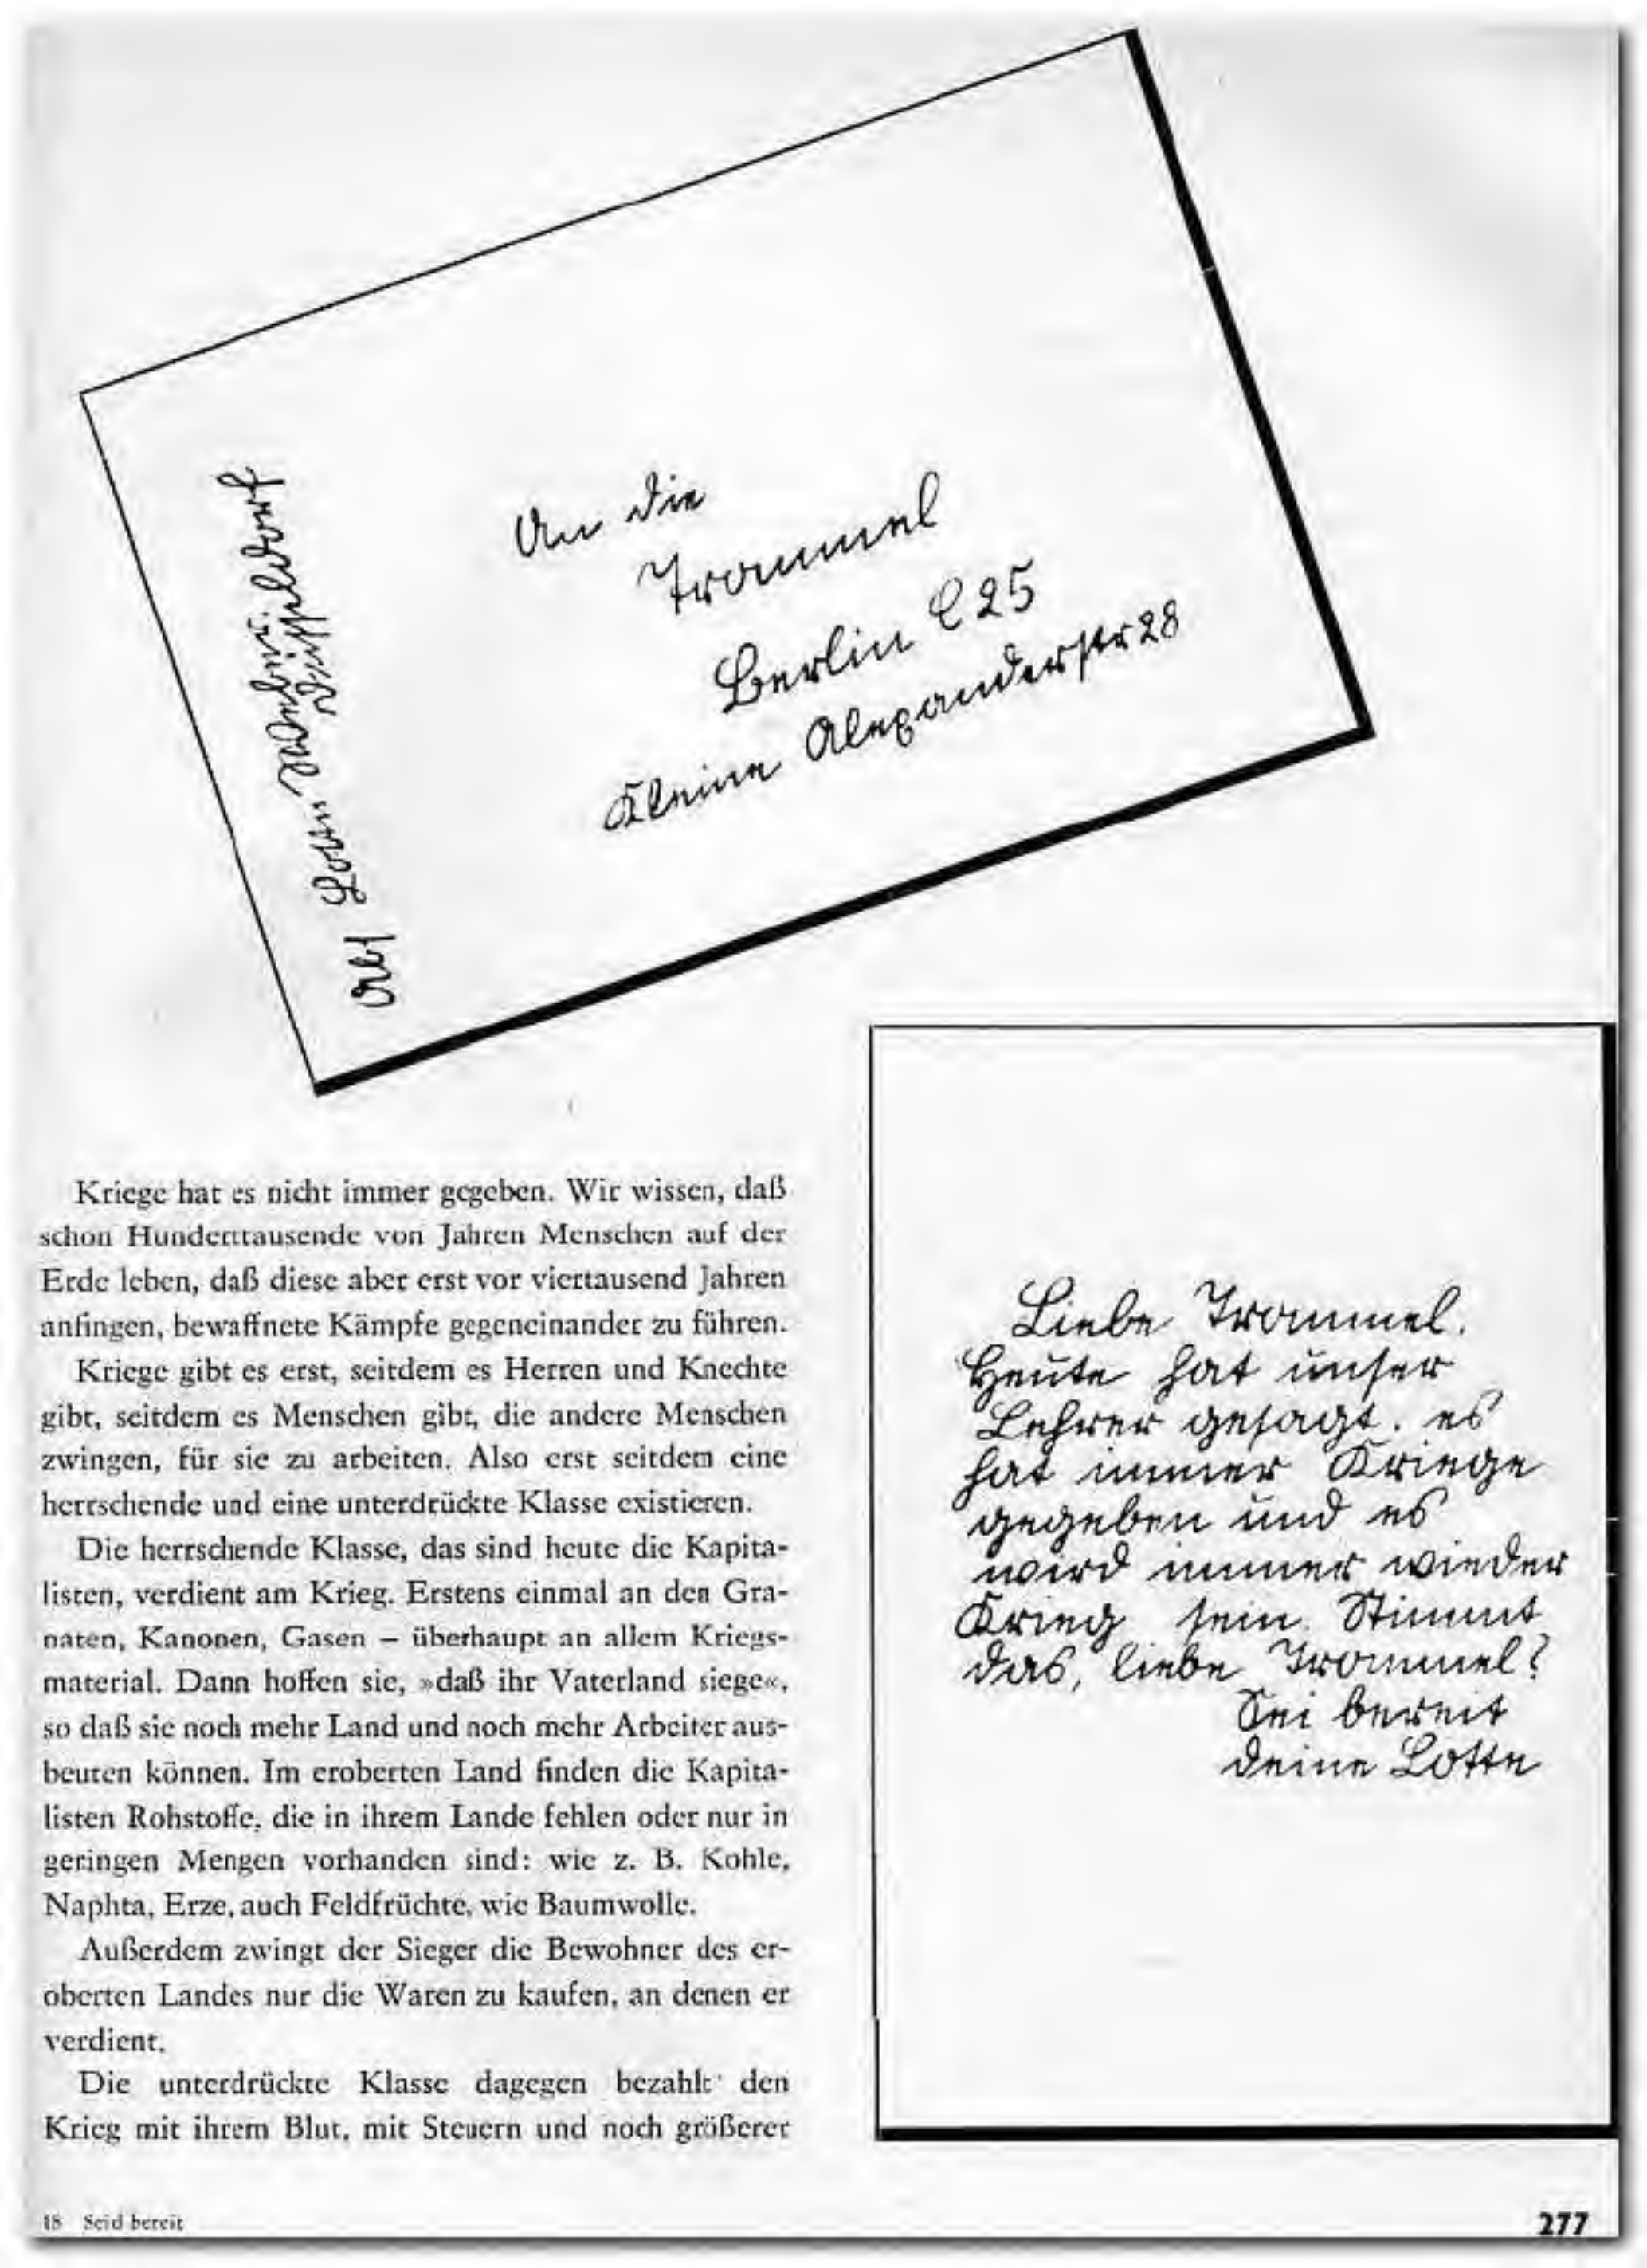 Lotte
Düsseldorf
An die
Trommel
Berlin C 25
Kleine Alexanderstr 28
Kriege hat es nicht immer gegeben. Wir wissen, daß
schon Hunderttausende von Jahren Menschen auf der
Erde leben, daß diese aber erst vor viertausend Jahren
anfingen, bewaffnete Kämpfe gegeneinander zu führen.
Kriege gibt es erst, seitdem es Herren und Knechte
gibt, seitdem es Menschen gibt, die andere Menschen
zwingen, für sie zu arbeiten. Also erst seitdem eine
herrschende und eine unterdrückte Klasse existieren.
Die herrschende Klasse, das sind heute die Kapita-
listen, verdient am Krieg. Erstens einmal an den Gra-
naten, Kanonen, Gasen – überhaupt an allem Kriegs-
material. Dann hoffen sie, »daß ihr Vaterland siege«,
so daß sie noch mehr Land und noch mehr Arbeiter aus-
beuten können. Im eroberten Land finden die Kapita-
listen Rohstoffe, die in ihrem Lande fehlen oder nur in
geringen Mengen vorhanden sind: wie z. B. Kohle,
Naphta, Erze, auch Feldfrüchte, wie Baumwolle.
Außerdem zwingt der Sieger die Bewohner des er-
oberten Landes nur die Waren zu kaufen, an denen er
verdient.
Die unterdrückte Klasse dagegen bezahlt den
Krieg mit ihrem Blut, mit Steuern und noch größerer
Liebe Trommel.
Heute hat unser
Lehrer gesagt. es
hat immer Kriege
gegeben und es
wird immer wieder
Krieg sein. Stimmt
das, liebe Trommel?
Sei bereit
deine Lotte
18 Seid bereit
277